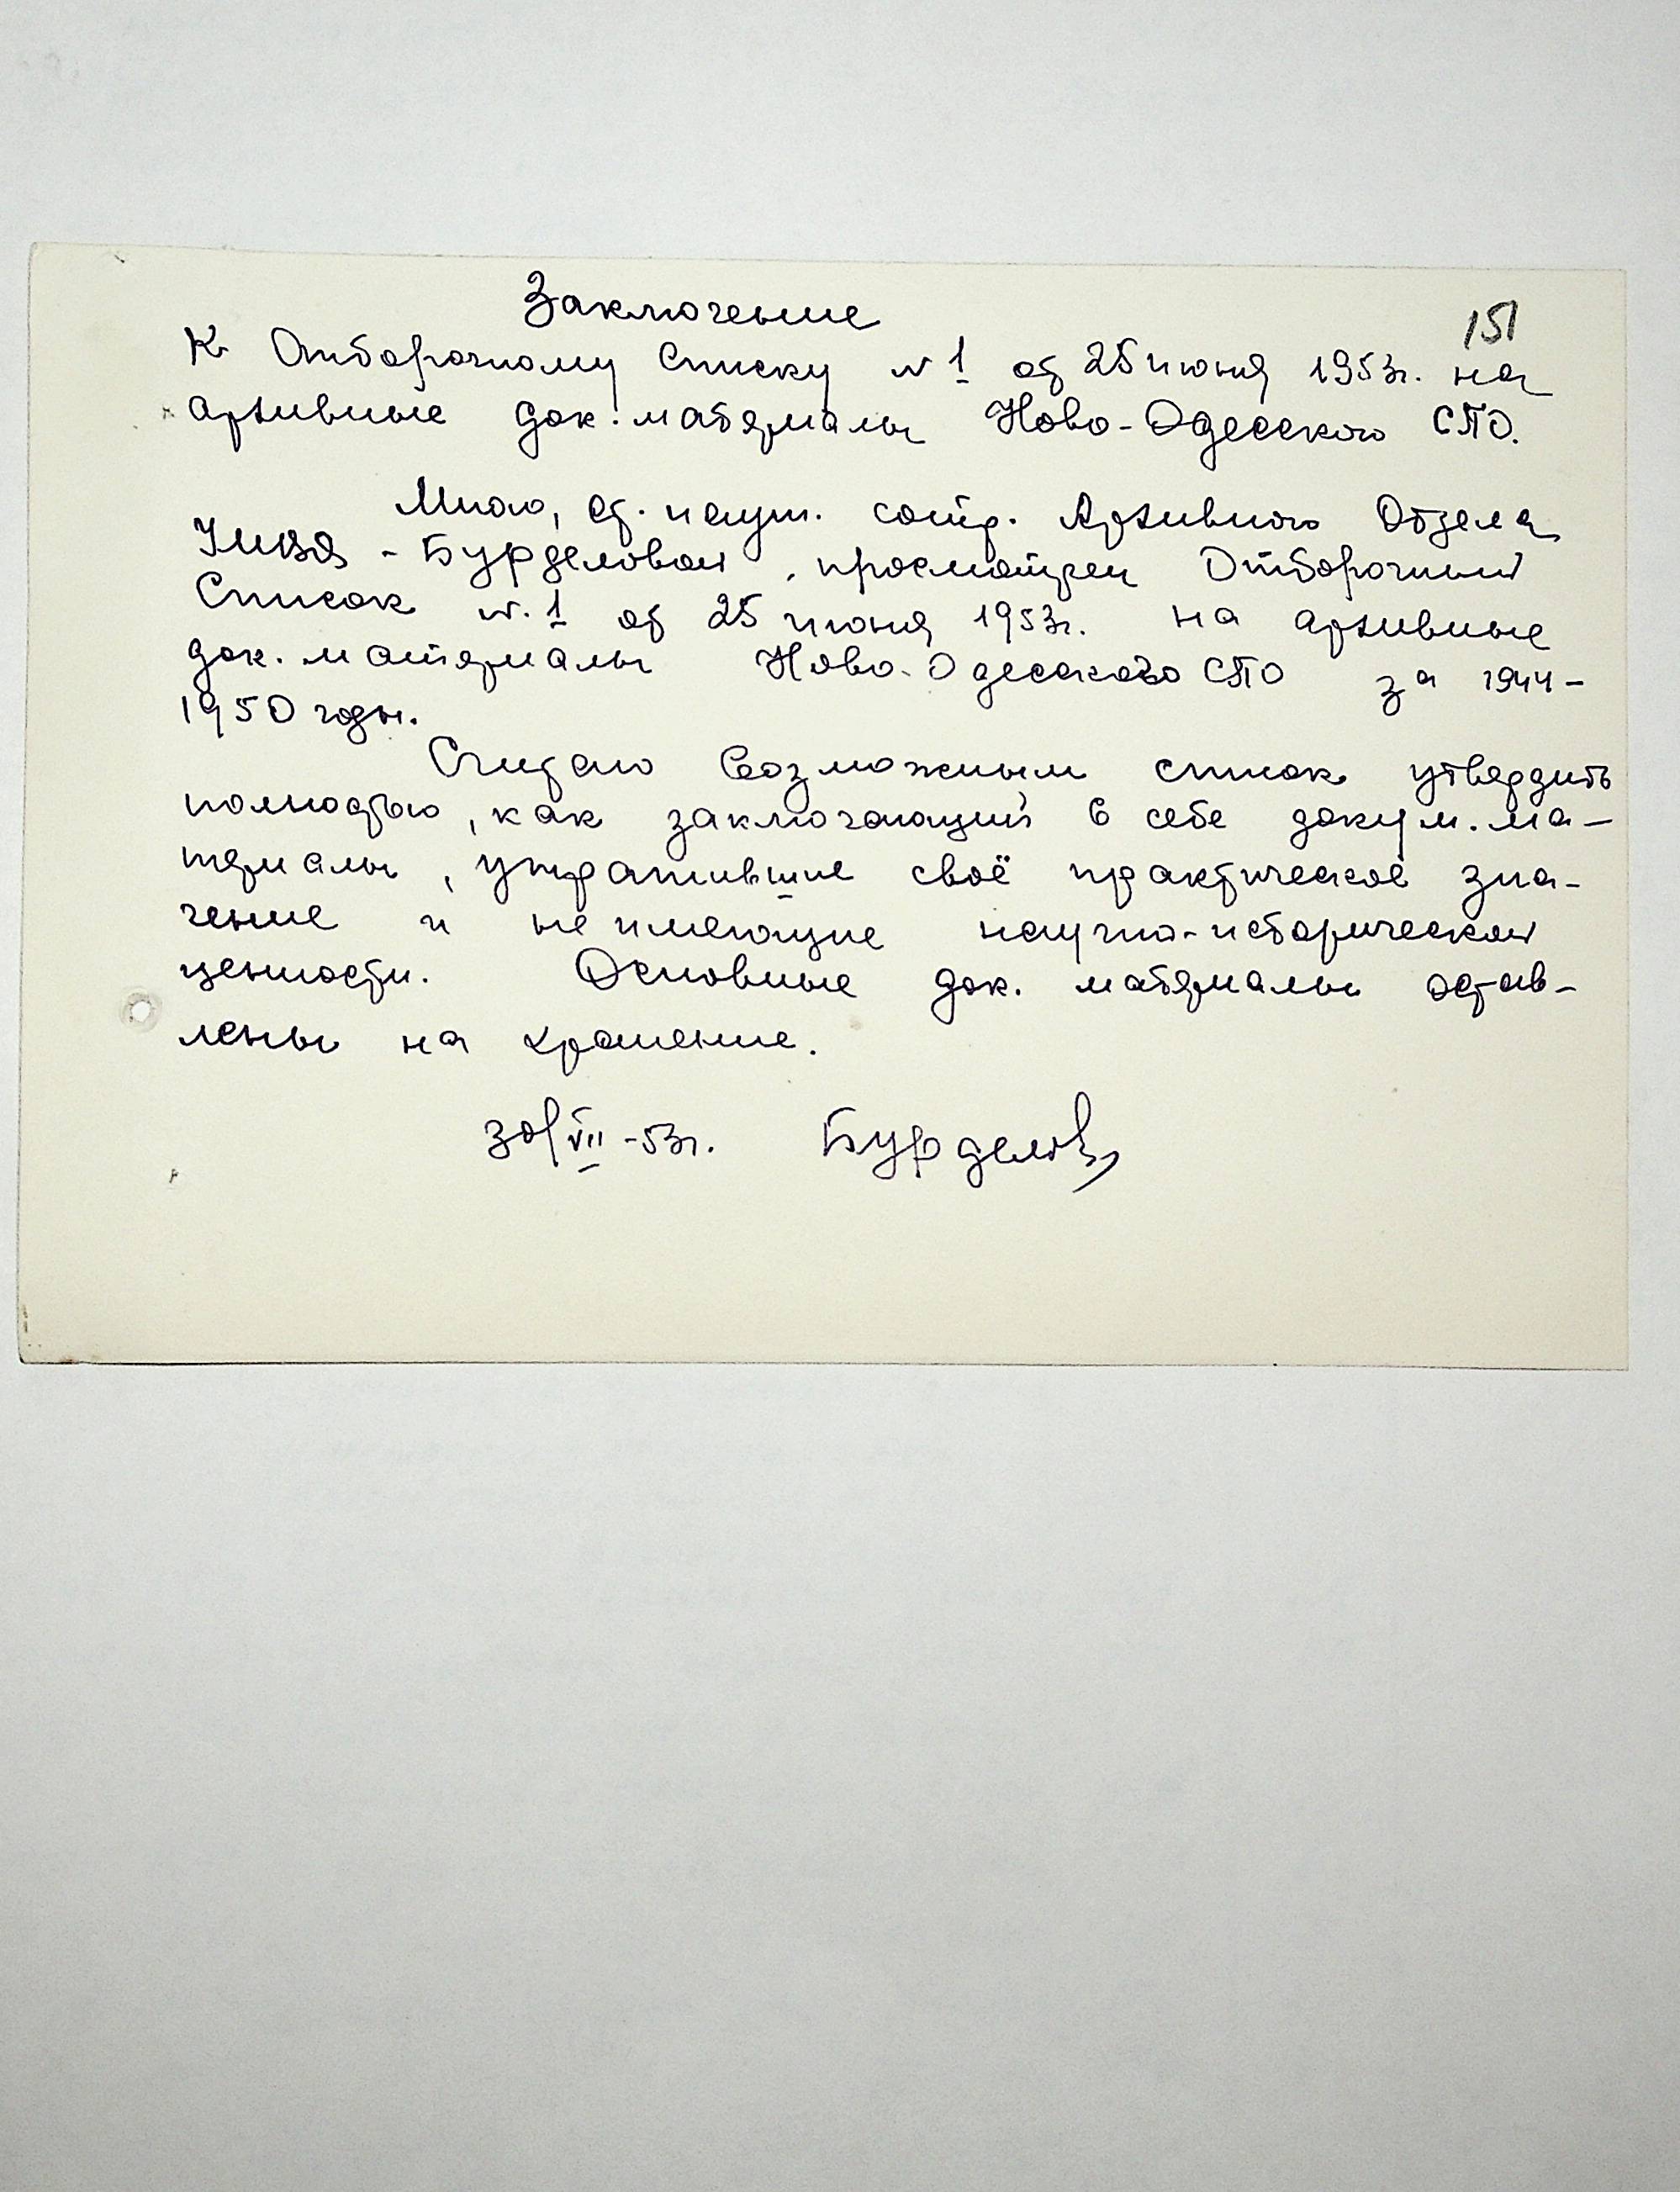 Заключение
151
К Отборочному списку № 1 от 25 июня 1953г. на
архивные док. материалы Ново-Одесского СПО.
Мною, ст. научн. сотр. Архивного Отдела
УМВД - Бурделовой, просмотрен Отборочный
Список №. 1 от 25 июня 1953г. на архивные
док. материалы Ново-Одесского СПО за 1944-
1950 годы.
Считаю возможным список утвердить
полностью, как заключающий в себе докум. ма-
териалы, утратившие своё практическое зна-
чение и не имеющие научно-исторической
ценности. Основные док. материалы остав-
лены на хранение.
30/VII-53г. Бурделова